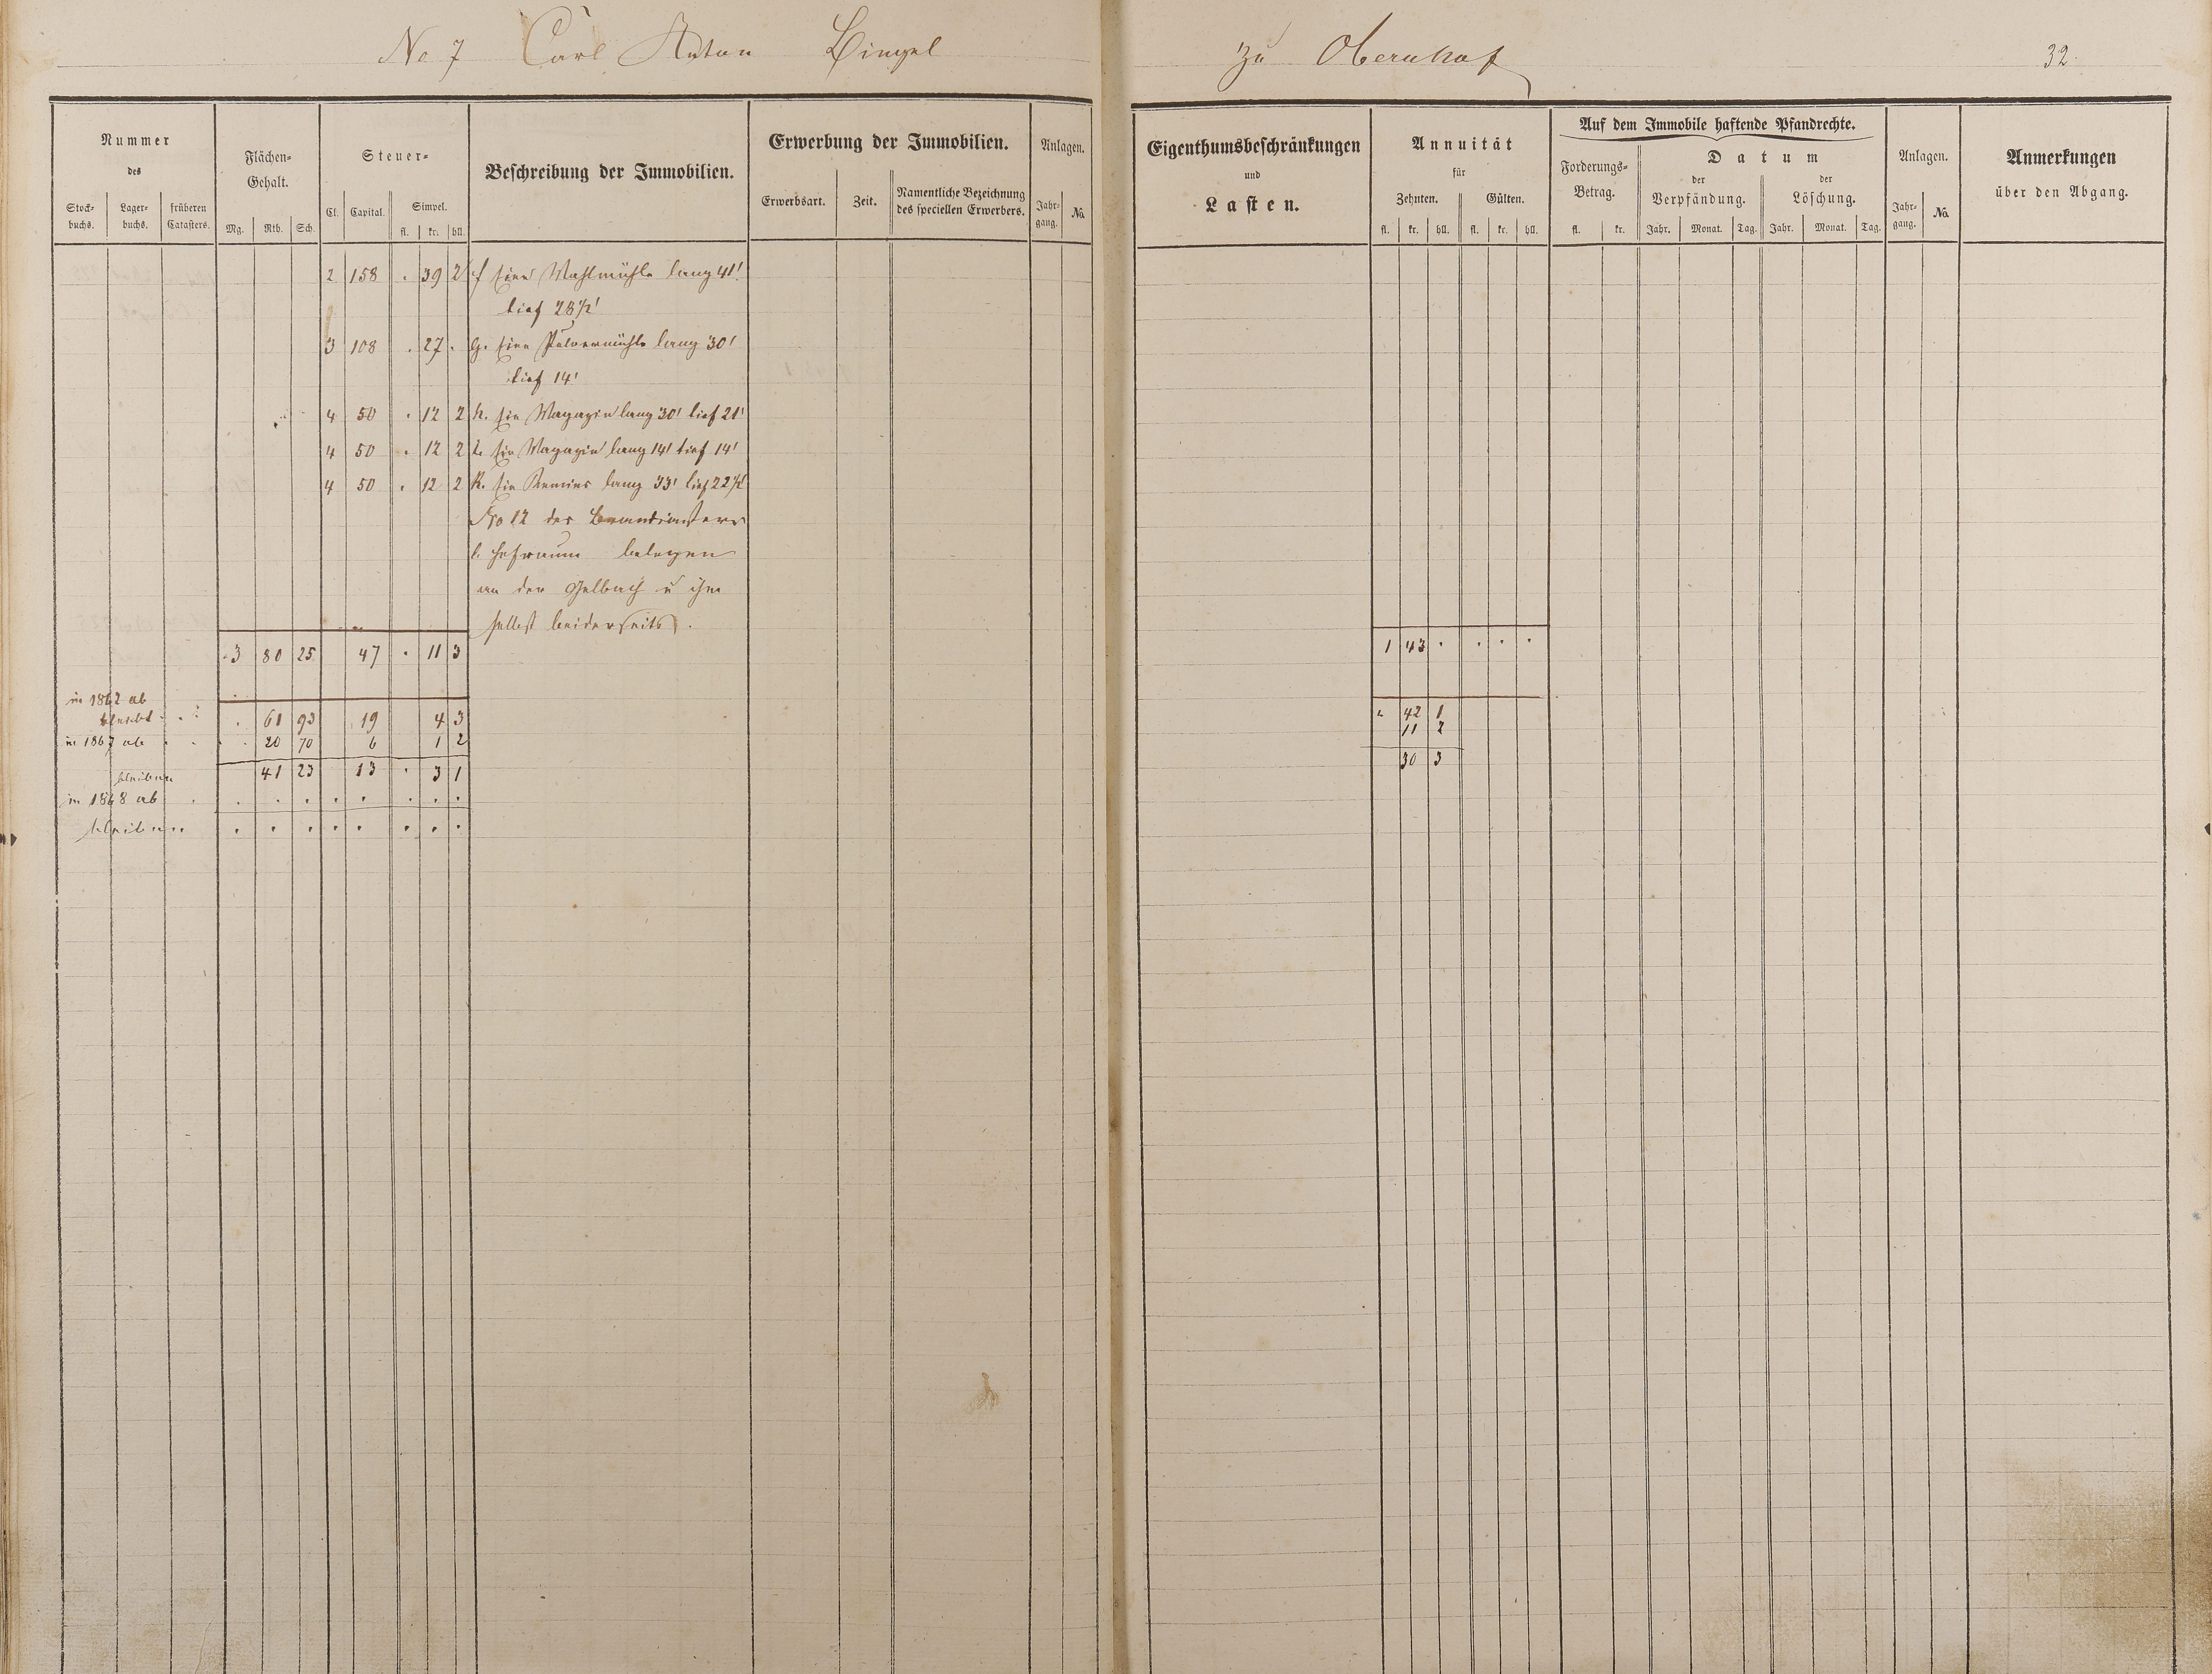 No 7 Carl Anton Bingel zu Obernhof 32.
Nummer
des
Stock-buchs. Lager-buchs. früheren Catasters.
Flächen-Gehalt.
Mg. Rth. Sch.
Steuer-
Cl. Capital. Simpel.
fl. kr. hll.
Beschreibung der Immobilien.
Erwerbung der Immobilien.
Erwerbsart. Zeit. Namentliche Bezeichnung des speciellen Erwerbers.
Anlagen.
Jahr-gang. No.
Eigenthumsbeschränkungen
und
Lasten.
Annuität
für
Zehnten. Gülten.
fl. kr. hll. fl. kr. hll.
Auf dem Immobile haftende Pfandrechte.
Forderungs-Betrag.
fl. kr.
Datum
der Verpfändung. der Löschung.
Jahr. Monat. Tag. Jahr. Monat. Tag.
Anlagen.
Jahr-gang. No.
Anmerkungen
über den Abgang.
2 158 . 39 2 f Eine Mahlmühle lang 41'
tief 28½'
3 108 . 27 . g. Eine Pulvermühle lang 30'
tief 14'
4 50 . 12 2 h. Ein Magazin lang 30' tief 21'
4 50 . 12 2 i. Ein Magazin lang 14' tief 14'
4 50 . 12 2 k. Ein Remise lang 33' tief 22½'
No 12 des Brandcasters
l. Hofraum belegen
an der Gelbach u ihm
selbst beiderseits.
3 80 25 47 . 11 3 1 43 . . . .
in 1862 ab
bleibt . 61 93 19 4 3 42 1
in 1867 ab . . . 20 70 6 1 2 11 2
bleiben 41 23 13 . 3 1 30 3
in 1868 ab . . . . . . . . .
bleiben . . . . . . . . .